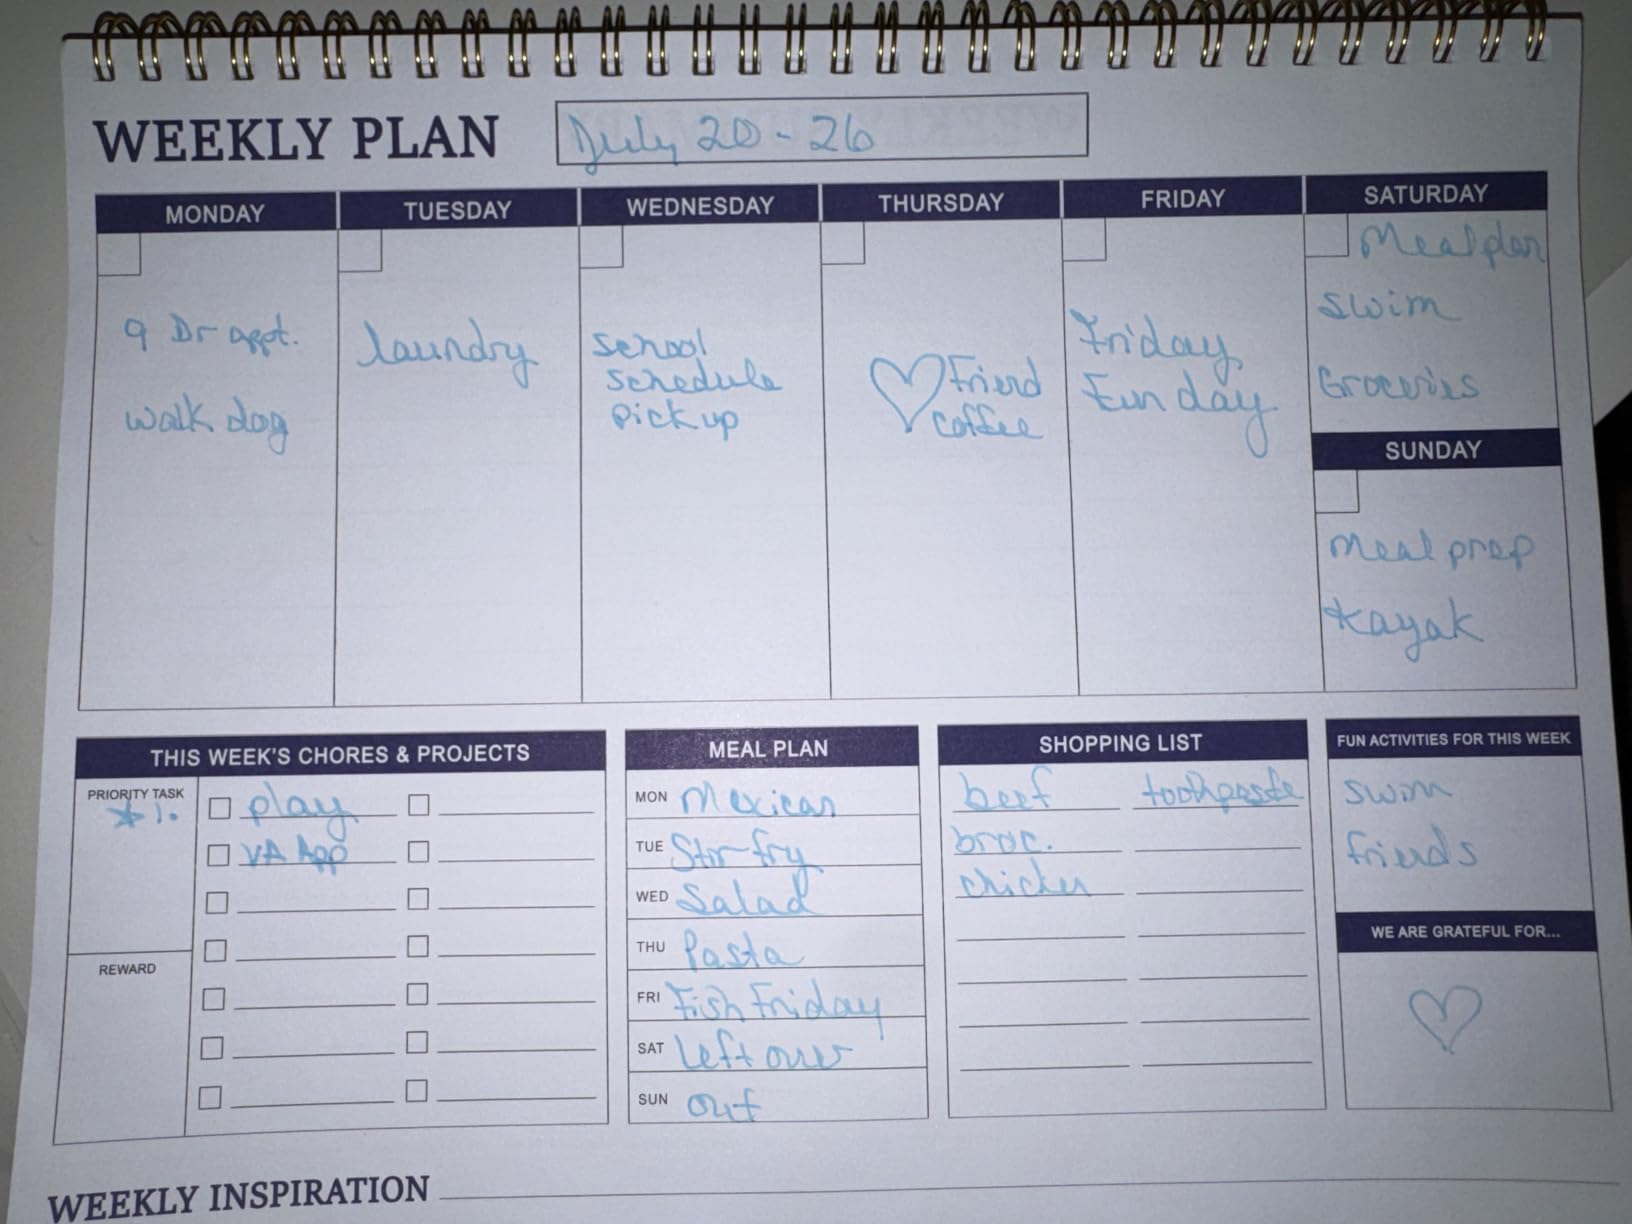 WEEKLY PLAN
July 20-26
MONDAY
TUESDAY
WEDNESDAY
THURSDAY
FRIDAY
SATURDAY
9 Dr appt.
walk dog
laundry
school
schedule
pick up
Friend
coffee
Friday
Fun day
Meal plan
swim
Groceries
SUNDAY
Meal prep
kayak
THIS WEEK'S CHORES & PROJECTS
PRIORITY TASK
* 1.
play
VA App
REWARD
MEAL PLAN
MON Mexican
TUE Stir-fry
WED Salad
THU Pasta
FRI Fish Friday
SAT Left over
SUN out
SHOPPING LIST
beef toothpaste
broc.
chicken
FUN ACTIVITIES FOR THIS WEEK
swim
friends
WE ARE GRATEFUL FOR...
WEEKLY INSPIRATION